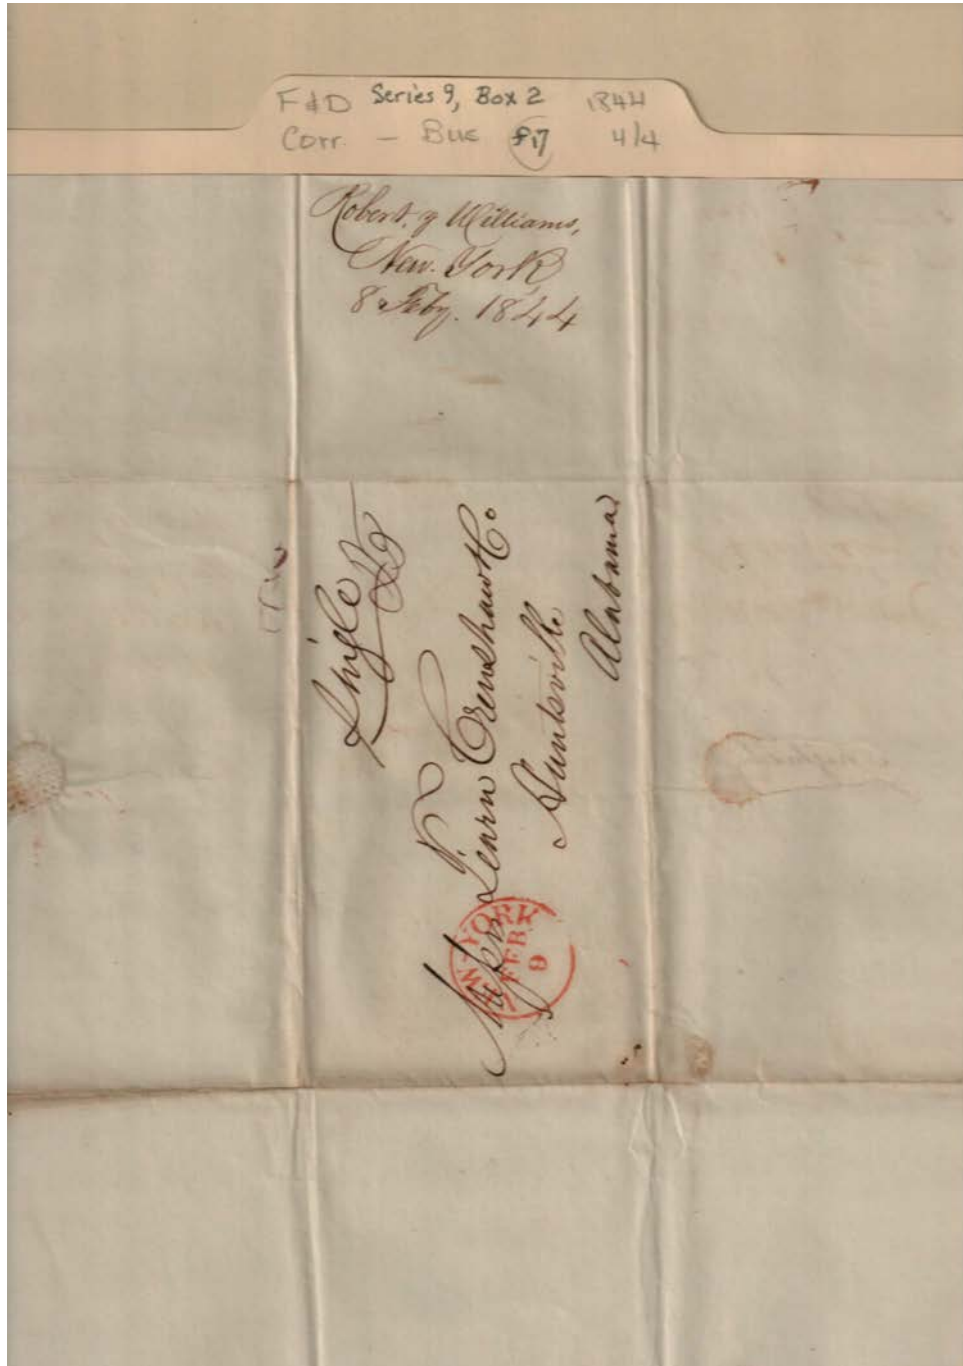 F&D Series 9, Box 2 1844
Corr. - Bus f17 4/4
Robert. & Williams,
New. York,
8 Feby. 1844
Single
Messrs Fearn Crenshaw & Co
Huntsville
Alabama
NEW-YORK
FEB
9